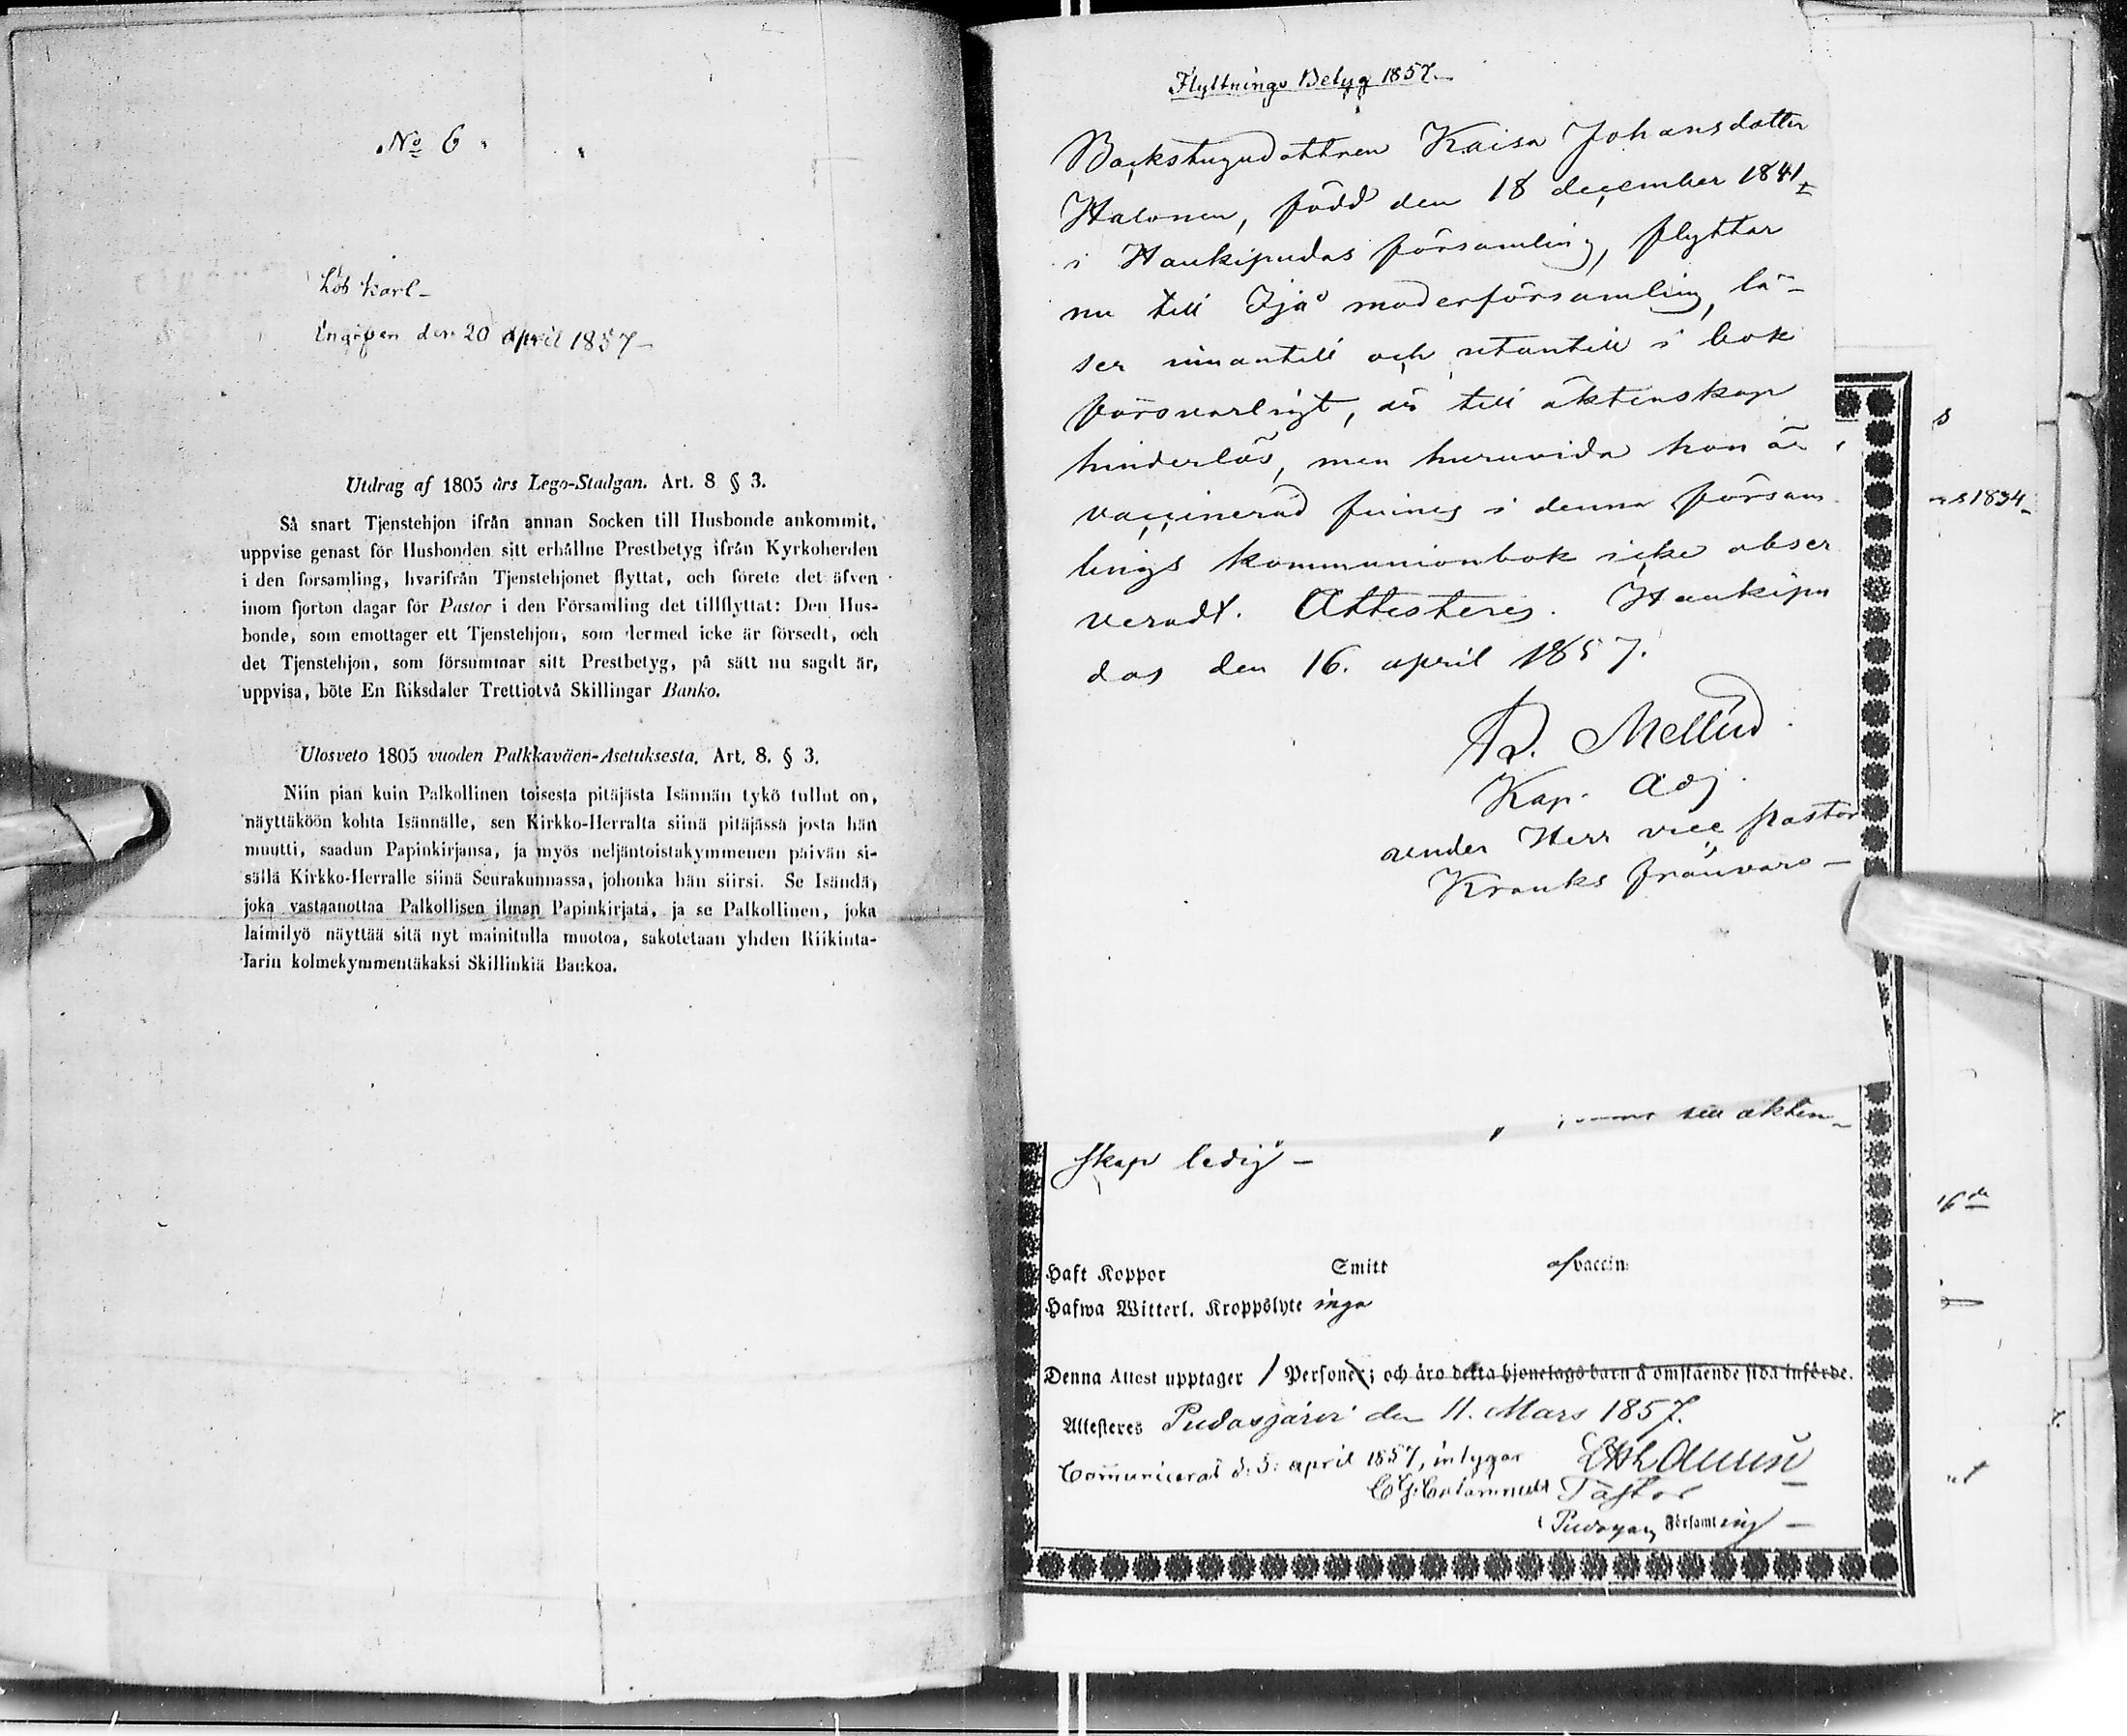 No 6.
Lös Karl_
Ingifven den 20 April 1857_
Utdrag af 1805 års Lego-Stadgan. Art. 8 § 3.
Så snart Tjenstehjon ifrån annan Socken till Husbonde ankommit,
uppvise genast för Husbonden sitt erhållne Prestbetyg ifrån Kyrkoherden
i den forsamling, hvarifrån Tjenstehjonet flyttat, och förete det äfven
inom fjorton dagar för Pastor i den Församling det tillflyttat: Den Hus-
bonde, som emottager ett Tjenstehjon, som dermed icke är försedt, och
det Tjenstehjon, som försummar sitt Prestbetyg, på sätt nu sagdt är,
uppvisa, böte En Riksdaler Trettiotvå Skillingar Banko.
Ulosveto 1805 vuoden Palkkaväen-Asetuksesta. Art. 8. § 3.
Niin pian kuin Palkollinen toisesta pitäjästa Isännän tykö tullut on,
näyttäköön kohta Isännälle, sen Kirkko-Herralta siinä pitäjässä josta hän
muutti, saadun Papinkirjansa, ja myös neljäntoistakymmenen päivän si-
sällä Kirkko-Herralle siinä Seurakunnassa, johonka hän siirsi. Se Isändä,
joka vastaanottaa Palkollisen ilman Papinkirjata, ja se Palkollinen, joka
laimilyö näyttää sitä nyt mainitulla muotoa, sakotetaan yhden Riikinta-
larin kolmekymmentäkaksi Skillinkiä Bankoa.
Flyttnings Betyg 1857._
Backstugudottren Kaisa Johansdotter
Halonen, född den 18 december 1841
i Haukipudas församling, flyttar
nu till Ijå moderförsamling, lä-
ser innantill och utantill i bok
försvarligt, är till äktenskap
hinderlös, men huruvida hon är
vaccinerad finnes i denna försam
lings kommunionbok icke obser
veradt. Attesteres. Haukipu
das den 16. april 1857.
Mellin
Kap. Adj.
under Herr vice pastor
Kranks frånvaro _
till äkten_
skap ledig _
s
1834_
Haft Koppor Smitt af vaccin:
Hafwa Witterl. Kroppslyte inga
Denna Attest upptager 1 Personer; och äro detta hjonelags barn å omstående sida införde.
Attesteres Pudasjärvi den 11. Mars 1857.
Communicerat d. 5. april 1857, intygar
Pastor
i Församling _